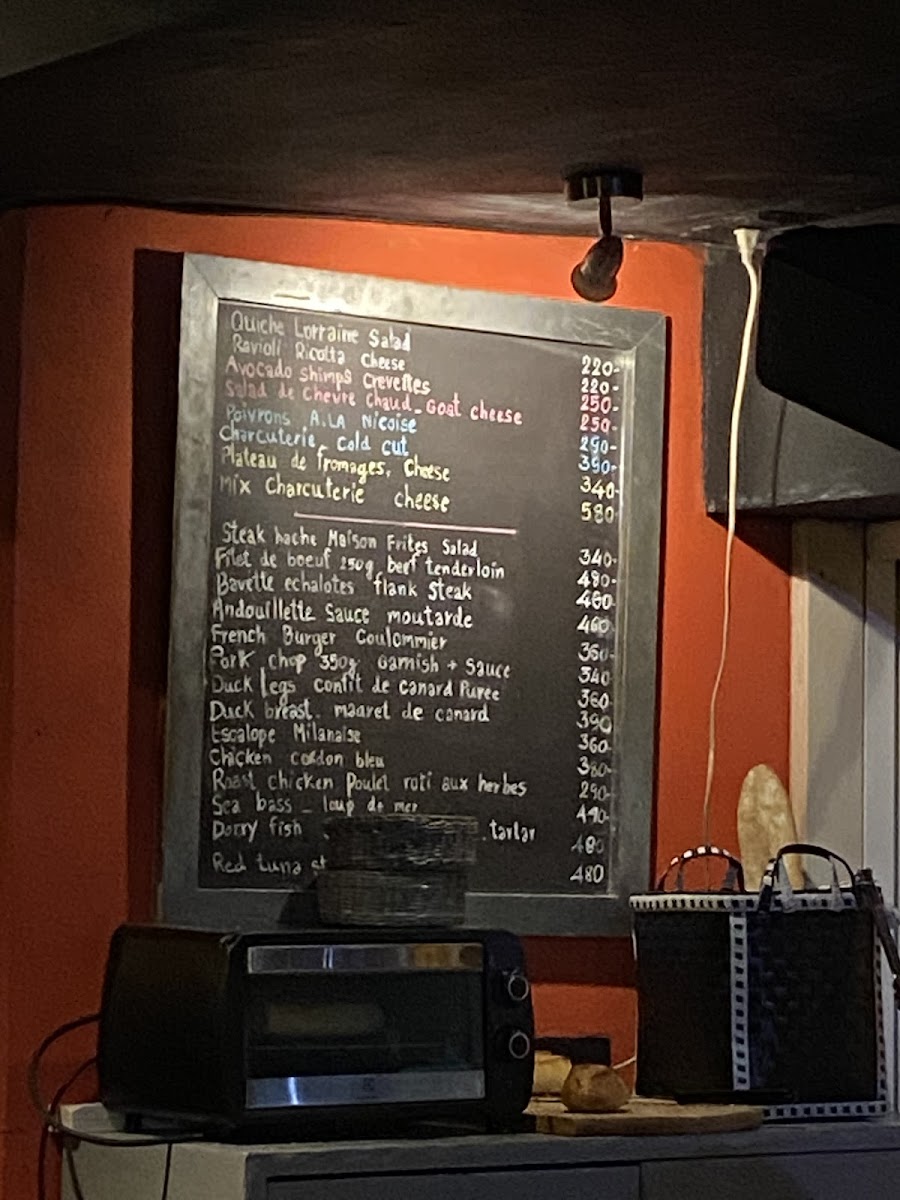 Quiche Lorraine Salad 220-
Ravioli Ricotta Cheese 220-
Avocado Shimps Crevettes 250-
Salad de Chevre Chaud - Goat cheese 250-
Poivrons A.LA Nicoise 290-
Charcuterie - Cold cut 390-
Plateau de fromages, Cheese 340-
Mix Charcuterie cheese 580-
Steak hache Maison Frites Salad 340-
Filet de boeuf 250g beef tenderloin 480-
Bavette echalotes flank Steak 460-
Andouillette Sauce moutarde 460-
French Burger Coulommier 360-
Pork chop 350g Garnish + Sauce 340
Duck legs confit de canard Puree 360-
Duck breast. magret de canard 390
Escalope Milanaise 360-
Chicken cordon bleu 380-
Roast chicken Poulet roti aux herbes 290-
Sea bass - loup de mer 490-
Dorry fish tartar 480
Red tuna 480